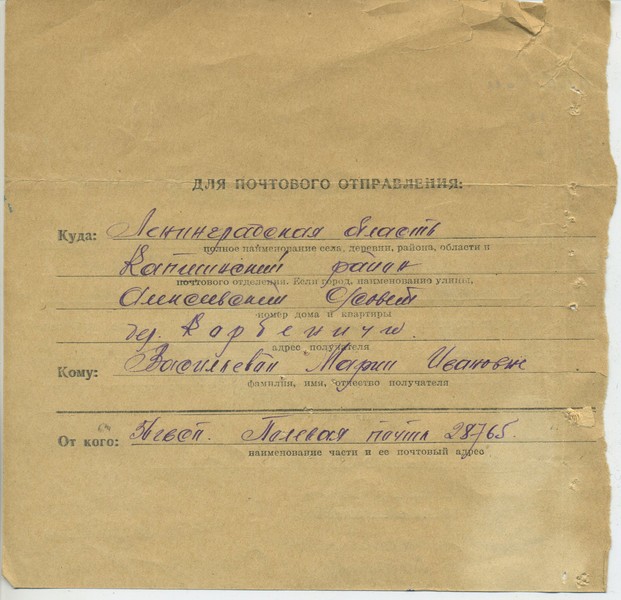 ДЛЯ ПОЧТОВОГО ОТПРАВЛЕНИЯ:
Куда: Ленинградская область
полное наименование села, деревни, района, области и
Капшинский район
почтового отделения. Если город, наименование улицы,
Алексеевский с/совет
номер дома и квартиры
дер. Корбеничи
адрес получателя
Кому: Васильевой Марии Ивановне
фамилия, имя, отчество получателя
От кого: Полевая почта 28765.
наименование части и ее почтовый адрес